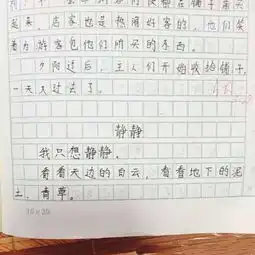 起来，店家也是热闹好客的，他们笑
看为游客包他们所买的东西。
夕阳过后，主人们开始收拾铺子，
一天又过去了。
静静
我只想静静。
看看天边的白云，看看地下的泥
土、青草。
16×20